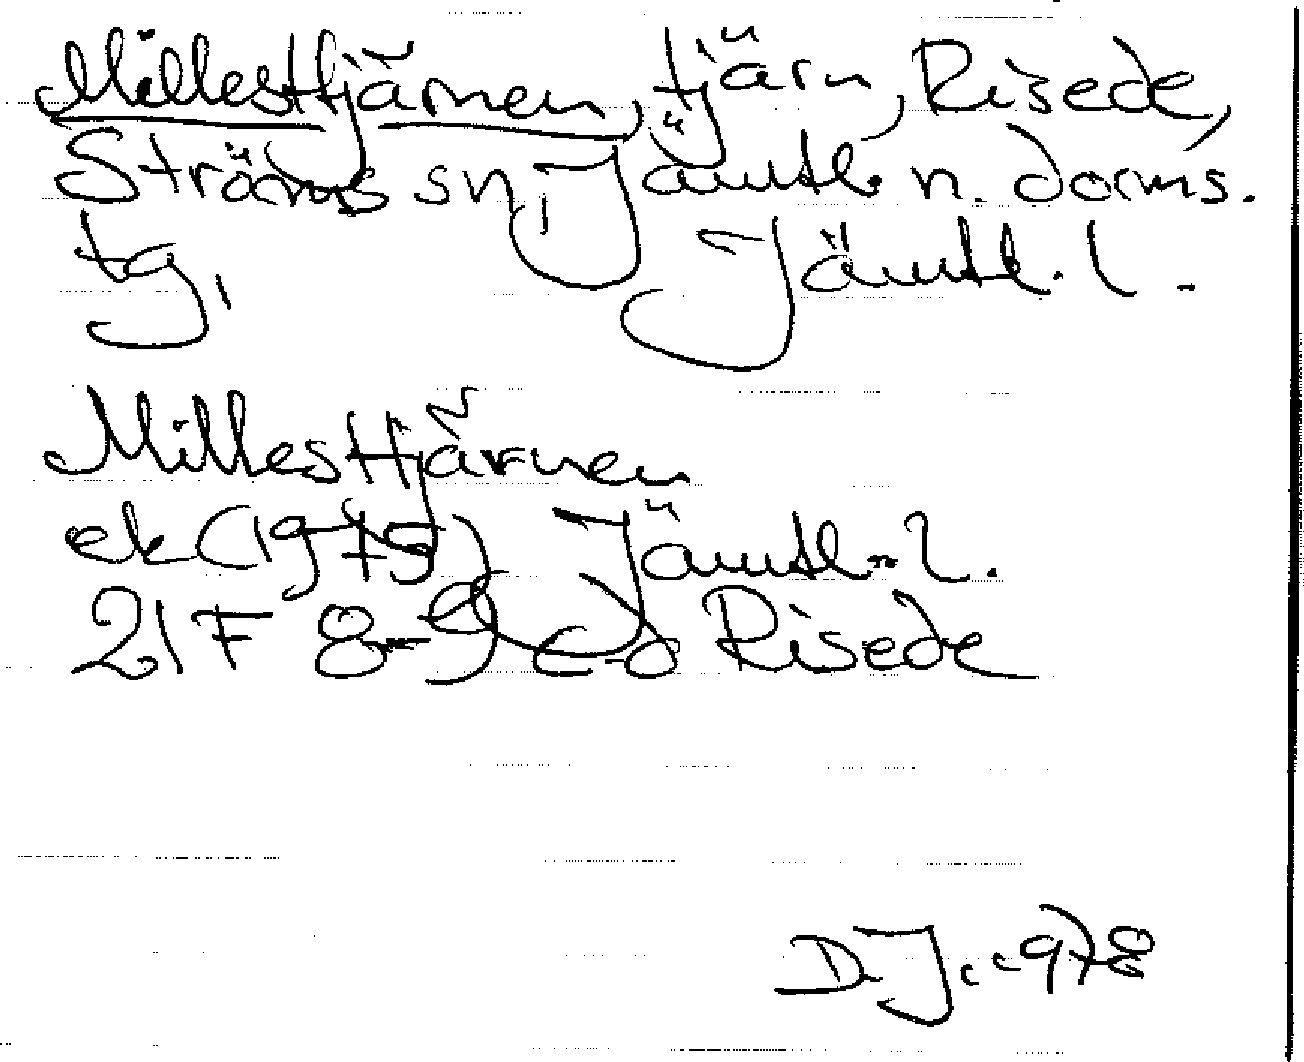 Millestjärnen, tjärn, Risede,
Ströms sn, Jämtl. n. doms.
tg, Jämtl. l.
Millestjärnen
ek (1975) Jämtl. l.
21F 8-9 c-d Risede
D.J. 1978